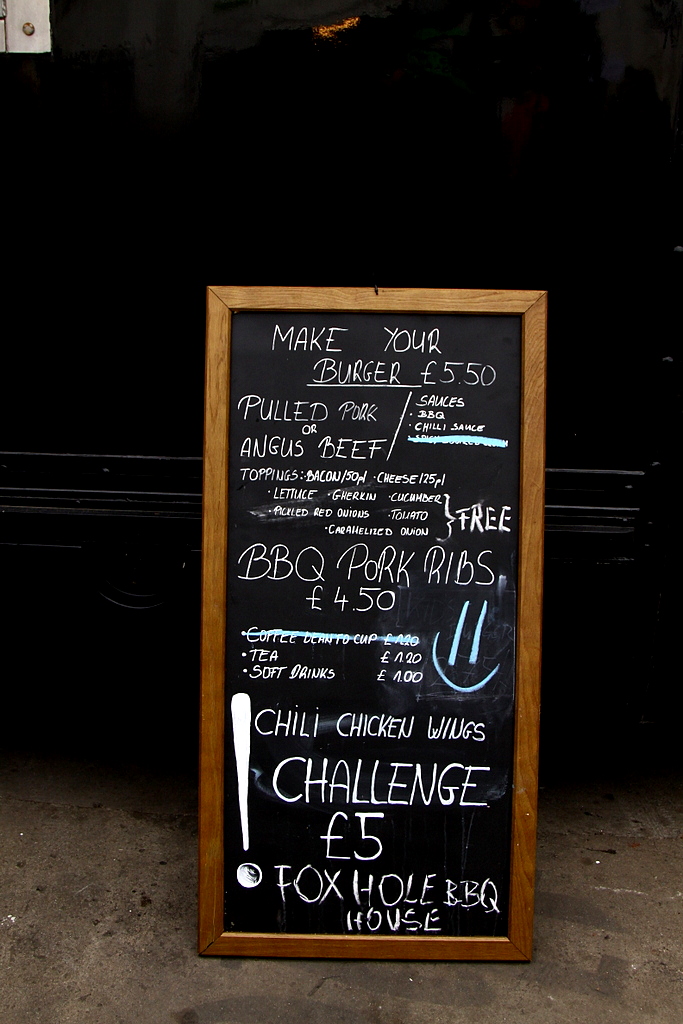 MAKE YOUR
BURGER £5.50
PULLED PORK
OR
ANGUS BEEF
SAUCES
· BBQ
· CHILLI SAUCE
TOPPINGS: ·BACON/50p/ ·CHEESE/25p/
·LETTUCE ·GHERKIN ·CUCUMBER
·PICKLED RED ONIONS ·TOMATO
·CARAMELIZED ONION
}FREE
BBQ PORK RIBS
£4.50
·COFFEE BEAN TO CUP £1.20
·TEA £1.20
·SOFT DRINKS £1.00
CHILI CHICKEN WINGS
CHALLENGE
£5
FOX HOLE BBQ
HOUSE